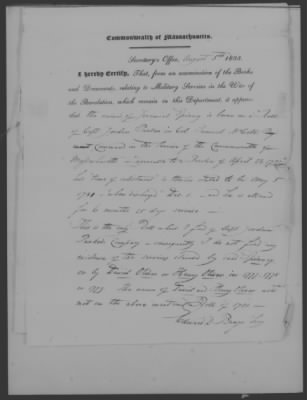 Commonwealth of Massachusetts.
Secretary's Office, August 5th 1833
I hereby Certify, That, from an examination of the Books
and Documents, relating to Military Services in the War of
the Revolution, which remain in this Department, it appears
that the name of is borne on a Roll
of Capt Jordan Parker in Col Samuel McCobb
Command in the Service of the Commonwealth of
Massachusetts agreeable to a Resolve of April
his time of is therein stated to be May 5
1781 when discharged Dec 1 and he is allowed
for 6 months days service
This is the only Roll which I find of Capt Jordan
Parker's Company consequently I do not find any
evidence of the service by said
or by David Oliver or Henry Oliver in 1777. 1778
or 1779. The names of David and Henry Oliver are
not on the above Roll of 1781
Edward D. Bangs Secy